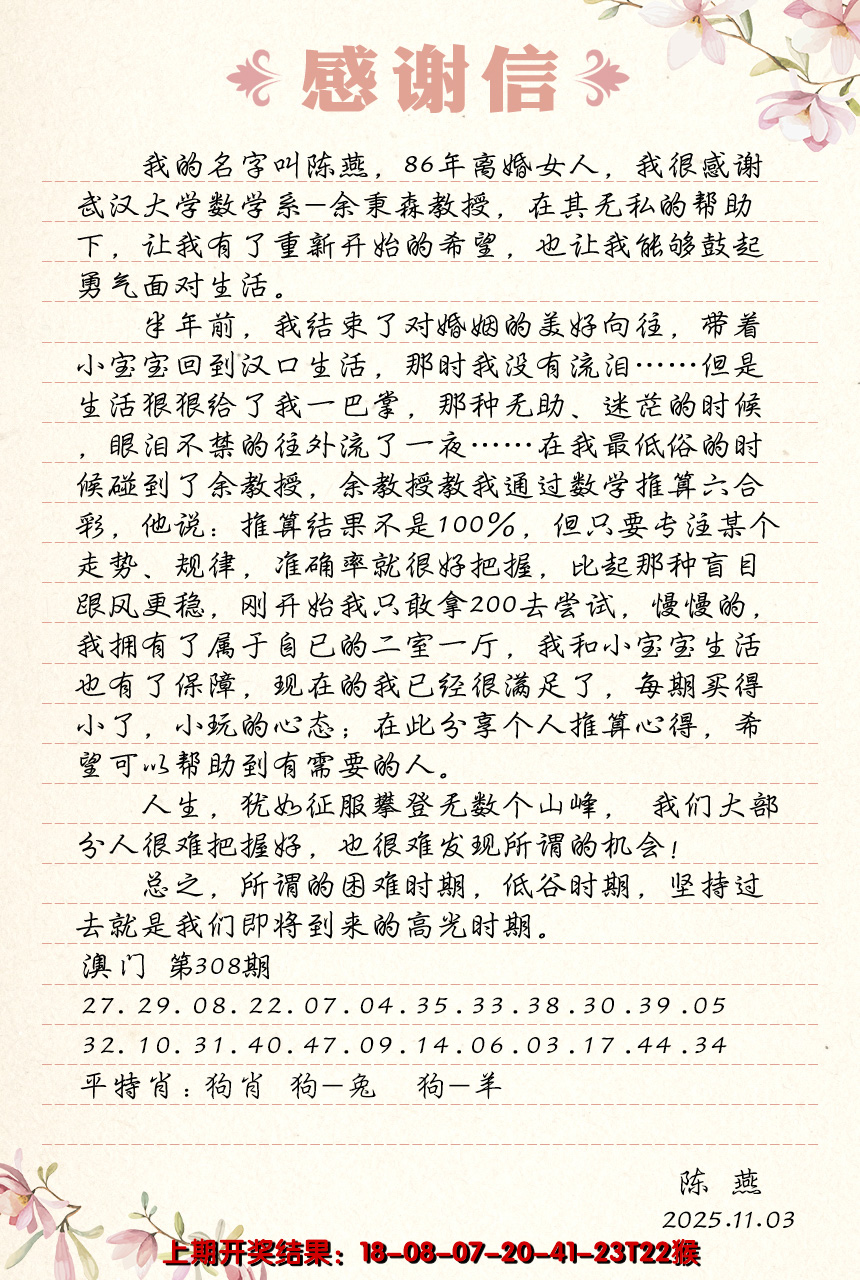 感谢信
我的名字叫陈燕，86年离婚女人，我很感谢
武汉大学数学系—余秉森教授，在其无私的帮助
下，让我有了重新开始的希望，也让我能够鼓起
勇气面对生活。
半年前，我结束了对婚姻的美好向往，带着
小宝宝回到汉口生活，那时我没有流泪……但是
生活狠狠给了我一巴掌，那种无助、迷茫的时候
，眼泪不禁的往外流了一夜……在我最低俗的时
候碰到了余教授，余教授教我通过数学推算六合
彩，他说：推算结果不是100%，但只要专注某个
走势、规律，准确率就很好把握，比起那种盲目
跟风更稳，刚开始我只敢拿200去尝试，慢慢的，
我拥有了属于自已的二室一厅，我和小宝宝生活
也有了保障，现在的我已经很满足了，每期买得
小了，小玩的心态；在此分享个人推算心得，希
望可以帮助到有需要的人。
人生，犹如征服攀登无数个山峰， 我们大部
分人很难把握好，也很难发现所谓的机会！
总之，所谓的困难时期，低谷时期，坚持过
去就是我们即将到来的高光时期。
澳门 第308期
27.29.08.22.07.04.35.33.38.30.39.05
32.10.31.40.47.09.14.06.03.17.44.34
平特肖：狗肖 狗—兔 狗—羊
陈 燕
2025.11.03
上期开奖结果：18-08-07-20-41-23T22猴